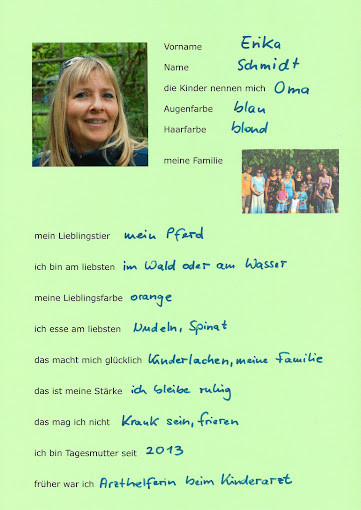 Vorname Erika
Name Schmidt
die Kinder nennen mich Oma
Augenfarbe blau
Haarfarbe blond
meine Familie
mein Lieblingstier mein Pferd
ich bin am liebsten im Wald oder am Wasser
meine Lieblingsfarbe orange
ich esse am liebsten Nudeln, Spinat
das macht mich glücklich Kinderlachen, meine Familie
das ist meine Stärke ich bleibe ruhig
das mag ich nicht Krank sein, frieren
ich bin Tagesmutter seit 2013
früher war ich Arzthelferin beim Kinderarzt